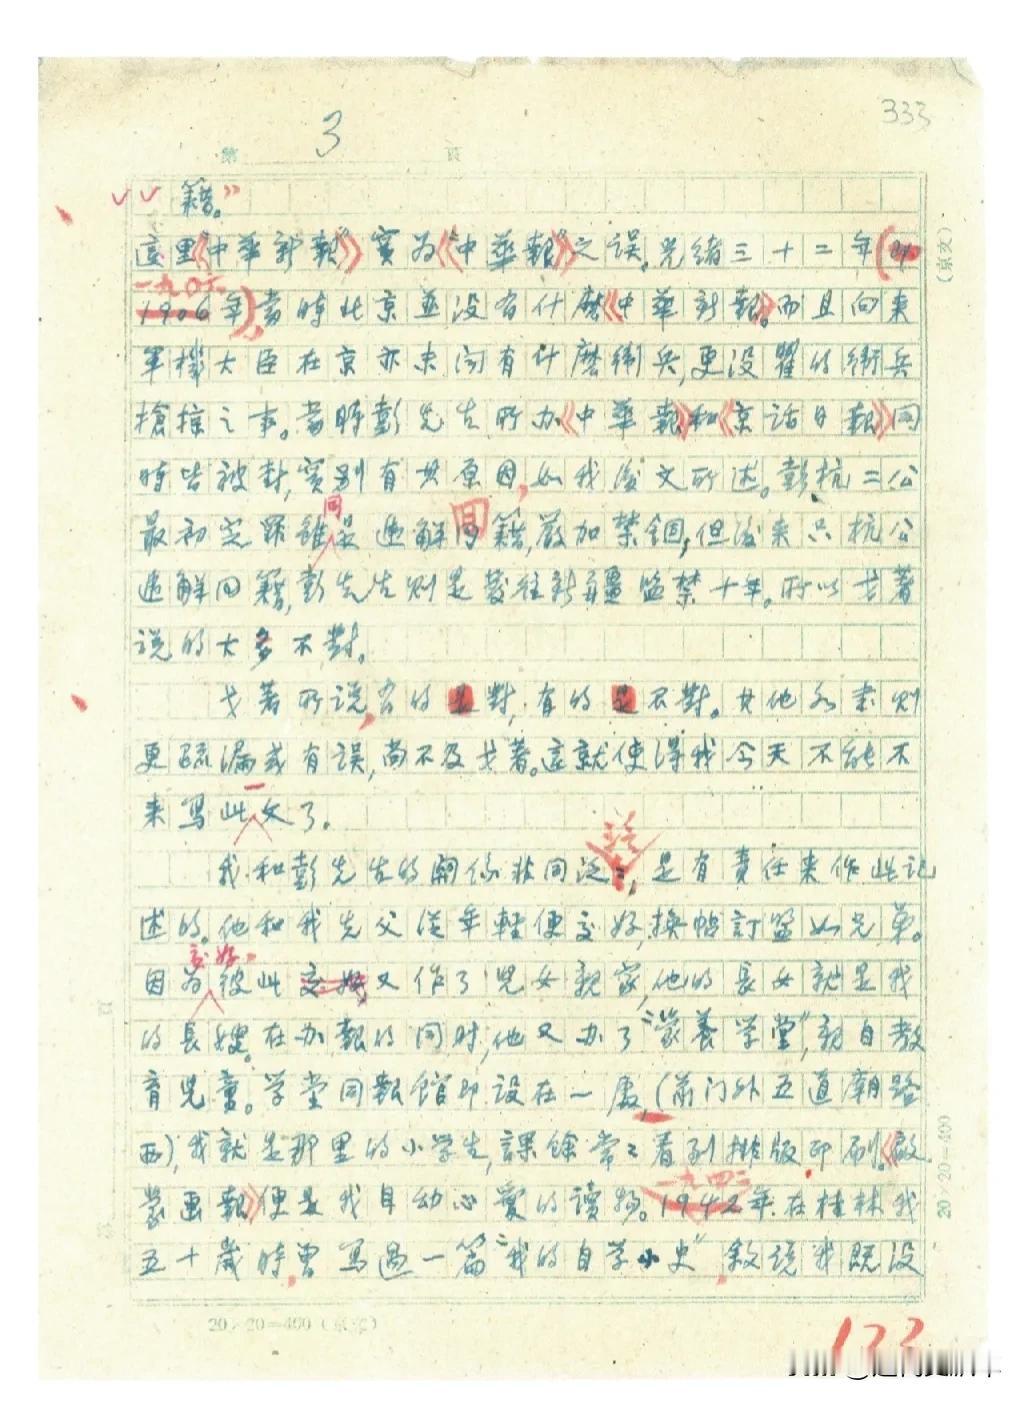 333
第 3 页
籍。”
這里《“中華新報”》實为《“中華報”》之误。光緒三十二年(即
一九〇六
1906年)。當時北京並没有什麽《中華新報》。而且向来
軍機大臣在京亦未闻有什麽衛兵,更没瞿的衛兵
搶掠之事。當時彭先生所办《中華報》和《京话日報》同
時皆被封,實别有其原因,如我後文所述。彭杭二公
同 回
最初定罪雖是遞解回籍,嚴加禁錮,但後来只杭公
遞解回籍,彭先生则是發往新疆監禁十年。所以戈著
说的大多不對。
戈著所说,有的是對,有的是不對。其他各書则
更疏漏或有误,尚不及戈著。這就使得我今天不能不
一
来写此文了。
泛
我和彭先生的關係非同泛泛,是有責任来作此记
述的。他和我先父從年輕便交好,換帖訂盟如兄弟。
交好。
因为彼此交好又作了兒女親家,他的長女就是我
的長嫂。在办報的同时,他又办了“蒙養学堂”,親自教
育兒童。学堂同報館即设在一處(前门外五道廟路
西),我就是那里的小学生,課餘常々看到排版印刷。《啟
一九四二
蒙画報》便是我自動心愛的读物。1942年在桂林我
五十歲時,曾寫過一篇“我的自学小史”,敘说我既没
(京文)
20×20=400
20×20=400(京文)
133